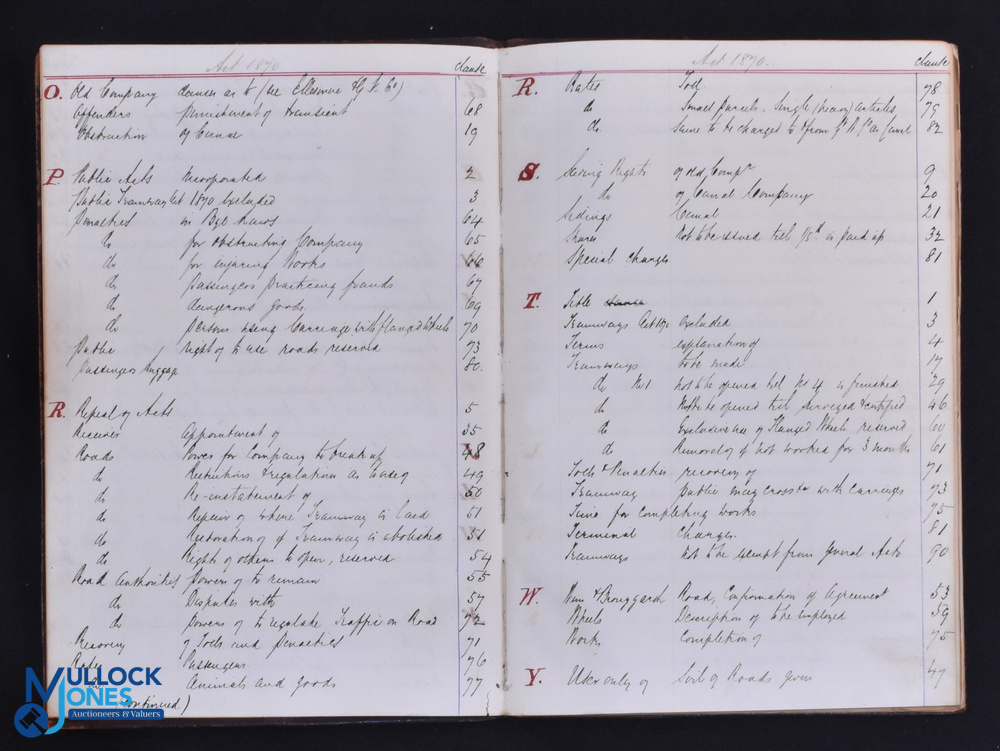 Act 1870 clause
O. Old Company декuses as to (see Ellesmere & G. V. Co)
Offenders punishment of transient 68
Obstruction of Canal 19
P. Public Acts Incorporated 2
Public Tramways Act 1870 Excluded 3
Penalties in Bye Laws 64
do for obstructing Company 65
do for injuring Works 66
do passengers practicing frauds 67
do dangerous goods 69
do persons using Carriage with flanged wheels 70
Public right of to use roads reserved 73
Passengers luggage 80.
R. Repeal of Acts 5
Receiver Appointment of 35
Roads Power for Company to break up 48
do Restrictions & regulation as to use of 49
do Re-instatement of 50
do Repairs of where Tramway is laid 51
do Restoration of if Tramway is abolished 51
do Right of others to open, reserved 54
Road Authorities powers of to remain 55
do Disputes with 57
do Powers of to regulate Traffic on Road 72
Recovery of Tolls and Penalties 71
Rates Passengers 76
do Animals and Goods 77
(continued)
MULLOCK JONES
Auctioneers & Valuers
Act 1870. clause
R. Rates Toll 78
do Small parcels. Single (heavy) articles 79
do Same to be charged to & from as Canal 82
S. Saving Rights of old Compy 9
do of Canal Company 20
Sidings Canal 21
Shares Not to be issued till 1/5th is paid up 32
Special Charges 81
T. Title 1
Tramways Act 1870 excluded 3
Terms explanation of 4
Tramways to be made 17
do No 1 not to be opened till No 4 is finished 29
do Not to be opened till surveyed & certified 46
do Exclusive use of Flanged Wheels reserved 60
do Removal of if not worked for 3 months 61
Tolls & Penalties recovery of 71
Tramway public may cross with carriages 73
Time for completing works 75
Terminal Charges 81
Tramways Not to be exempt from General Acts 90
W. Wem & Bronygarth Road, Confirmation of Agreement 53
Wheels Description of to be employed 59
Works Completion of 75
Y. User only of Soil of Roads given 47